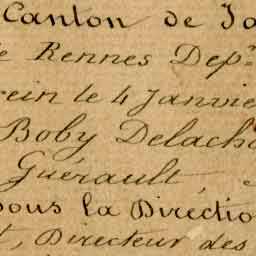 Canton de Ja
e Rennes Dep.
rein le 4 Janvie
Boby Delacho
Guérault,
sous la Directio
t, Directeur des